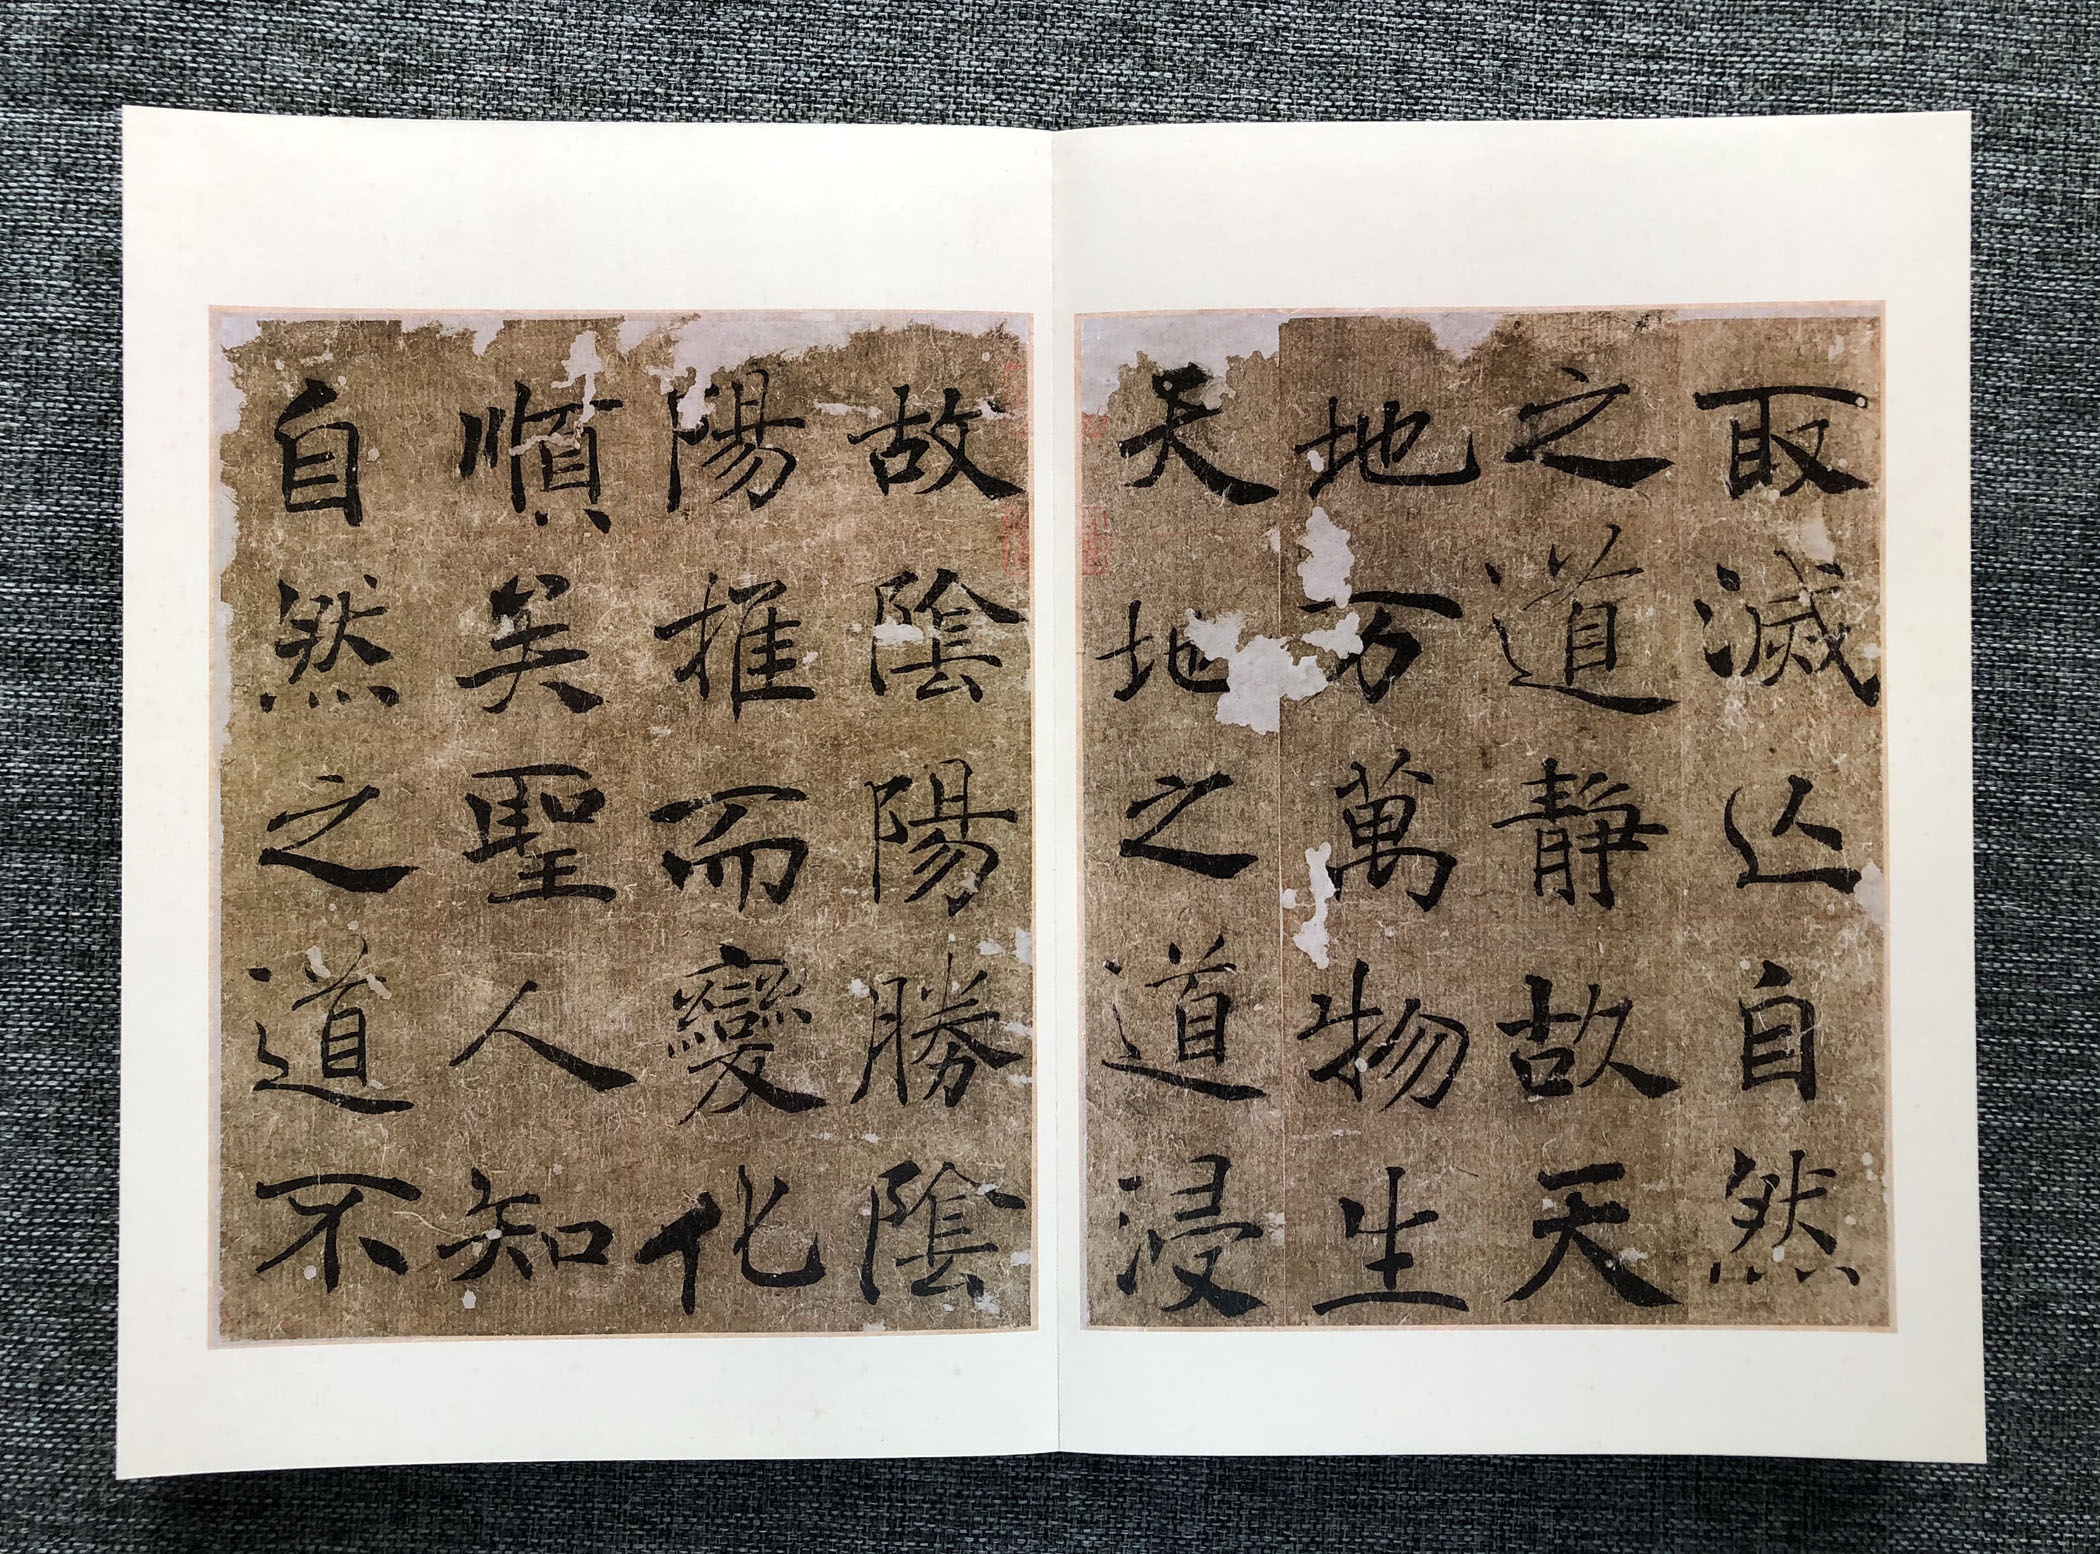 取滅亾自然
之道静故天
地万萬物生
天地之道浸
故陰陽勝陰
陽推而變化
順矣聖人知
自然之道不